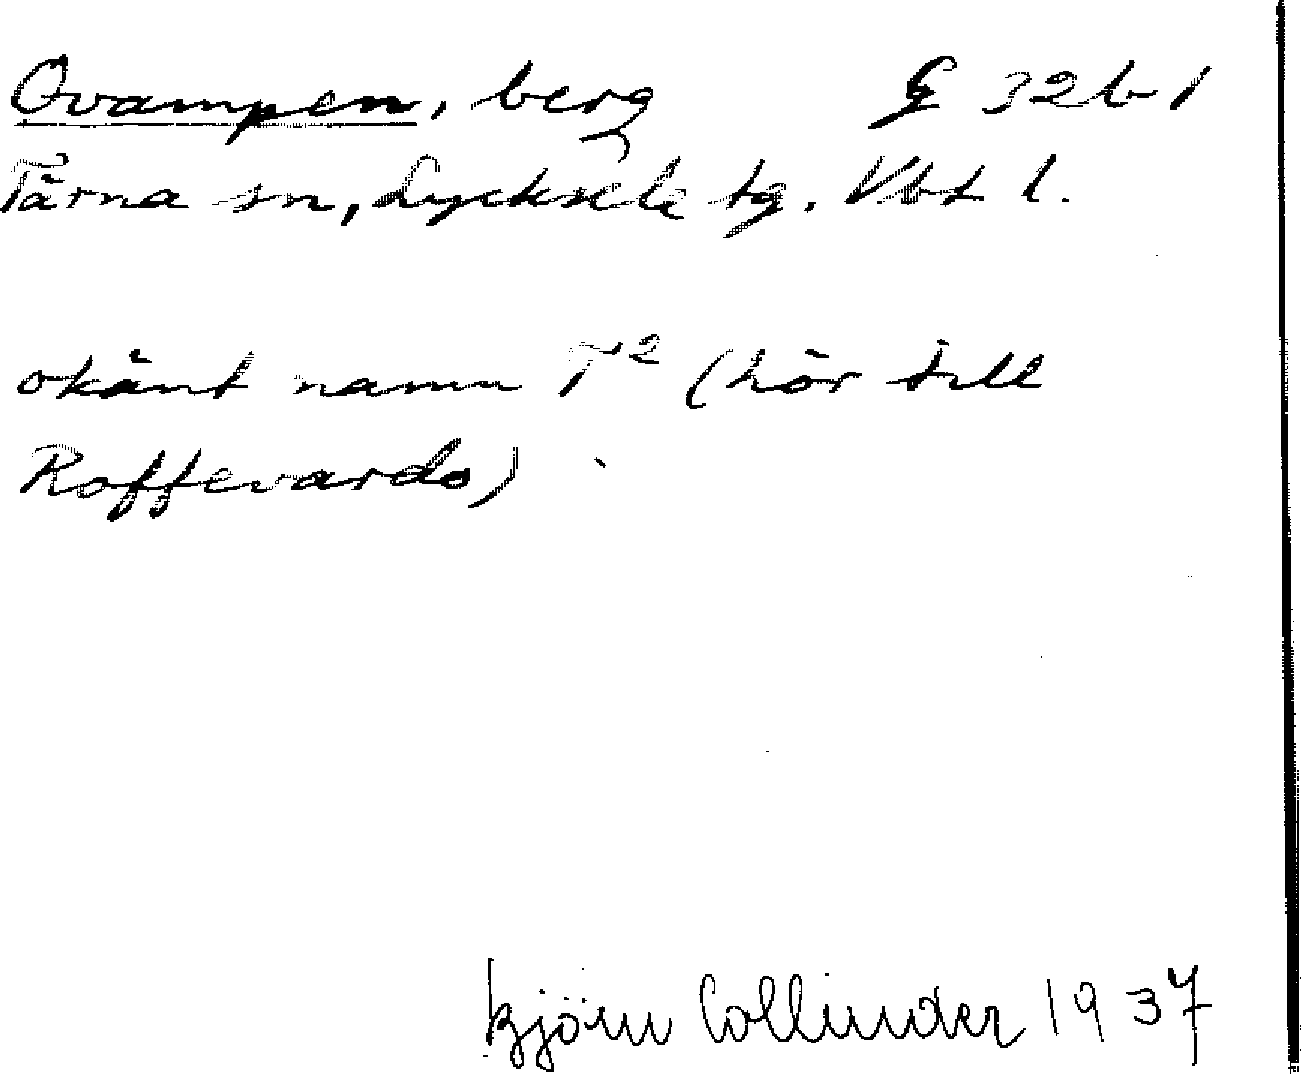 Ovampen, berg § 32b1
Tärna sn, Lycksele tg. Vbt l.
okänt namn T² (hör till
Roffevardo)
Björn Collinder 1937